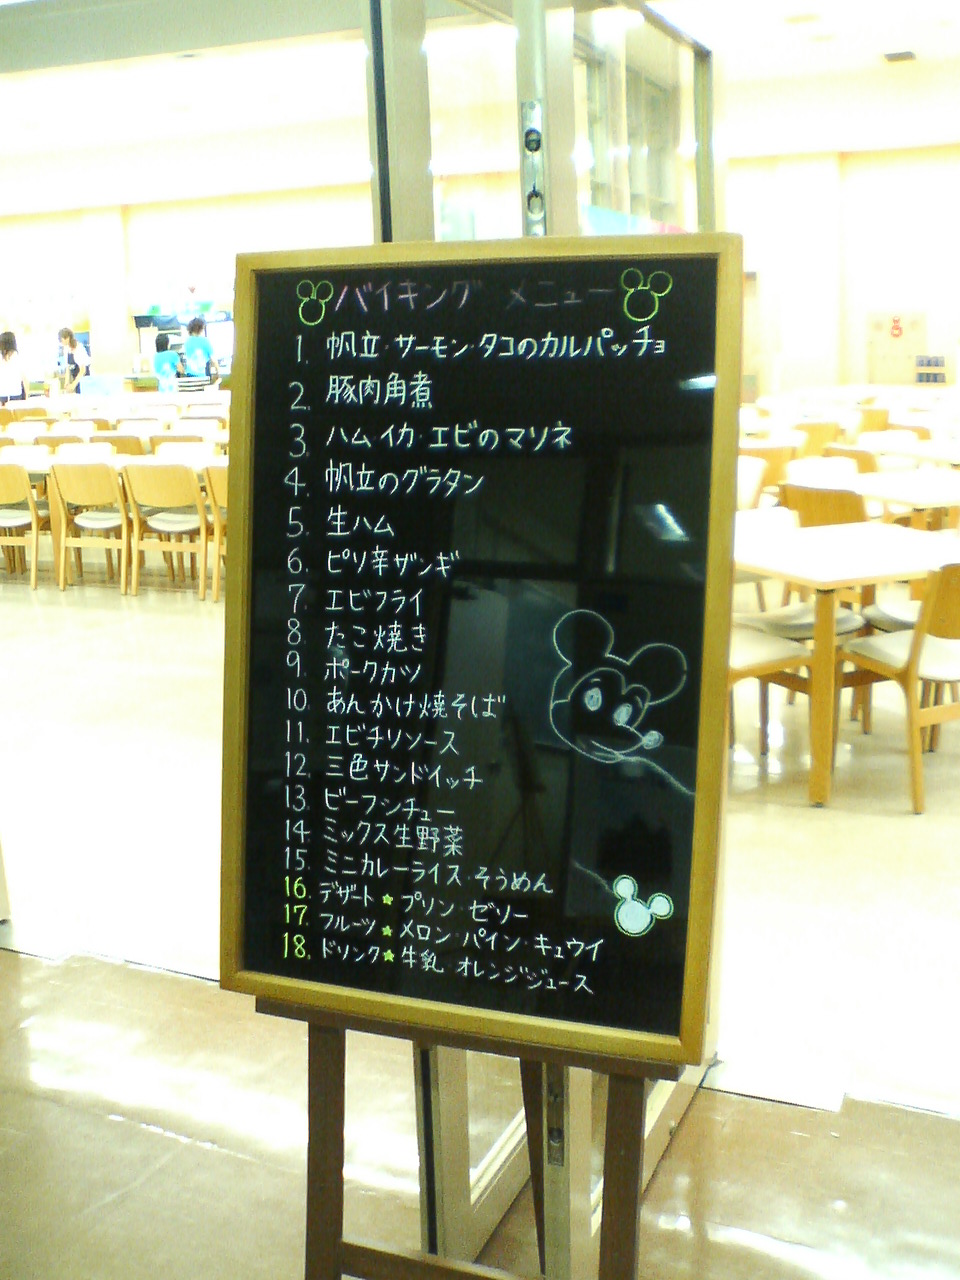 バイキング メニュー
1. 帆立・サーモン・タコのカルパッチョ
2. 豚肉角煮
3. ハム・イカ・エビのマリネ
4. 帆立のグラタン
5. 生ハム
6. ピリ辛ザンギ
7. エビフライ
8. たこ焼き
9. ポークカツ
10. あんかけ焼そば
11. エビチリソース
12. 三色サンドイッチ
13. ビーフシチュー
14. ミックス生野菜
15. ミニカレーライス・そうめん
16. デザート★プリン・ゼリー
17. フルーツ★メロン・パイン・キュウイ
18. ドリンク★牛乳・オレンジジュース